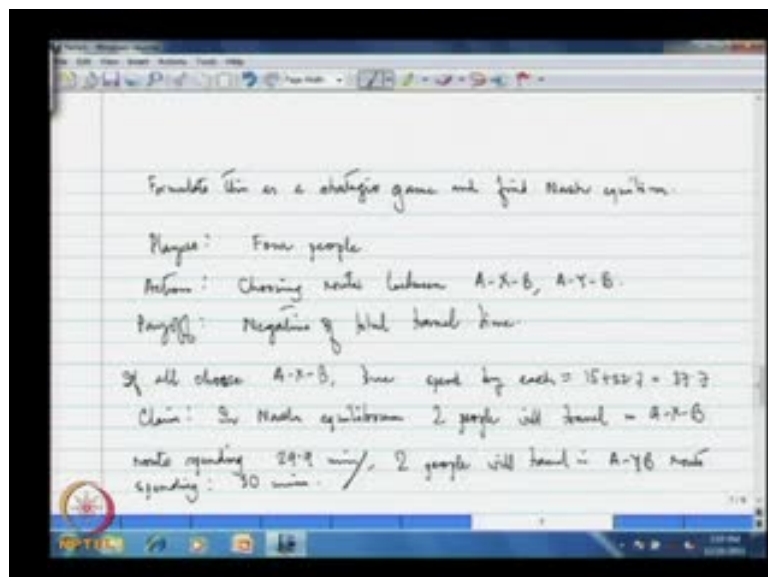 Formulate this as a strategic game and find Nash equilibm.
Players: Four people
Action: Choosing routes between A-X-B, A-Y-B.
Payoff: Negative of total travel time.
If all choose A-X-B, time spend by each = 15+22.7 = 37.7
Claim: In Nash equilibrium 2 people will travel in A-X-B
route spending 29.9 mins, 2 people will travel in A-YB route
spending: 30 mins.
NPTEL